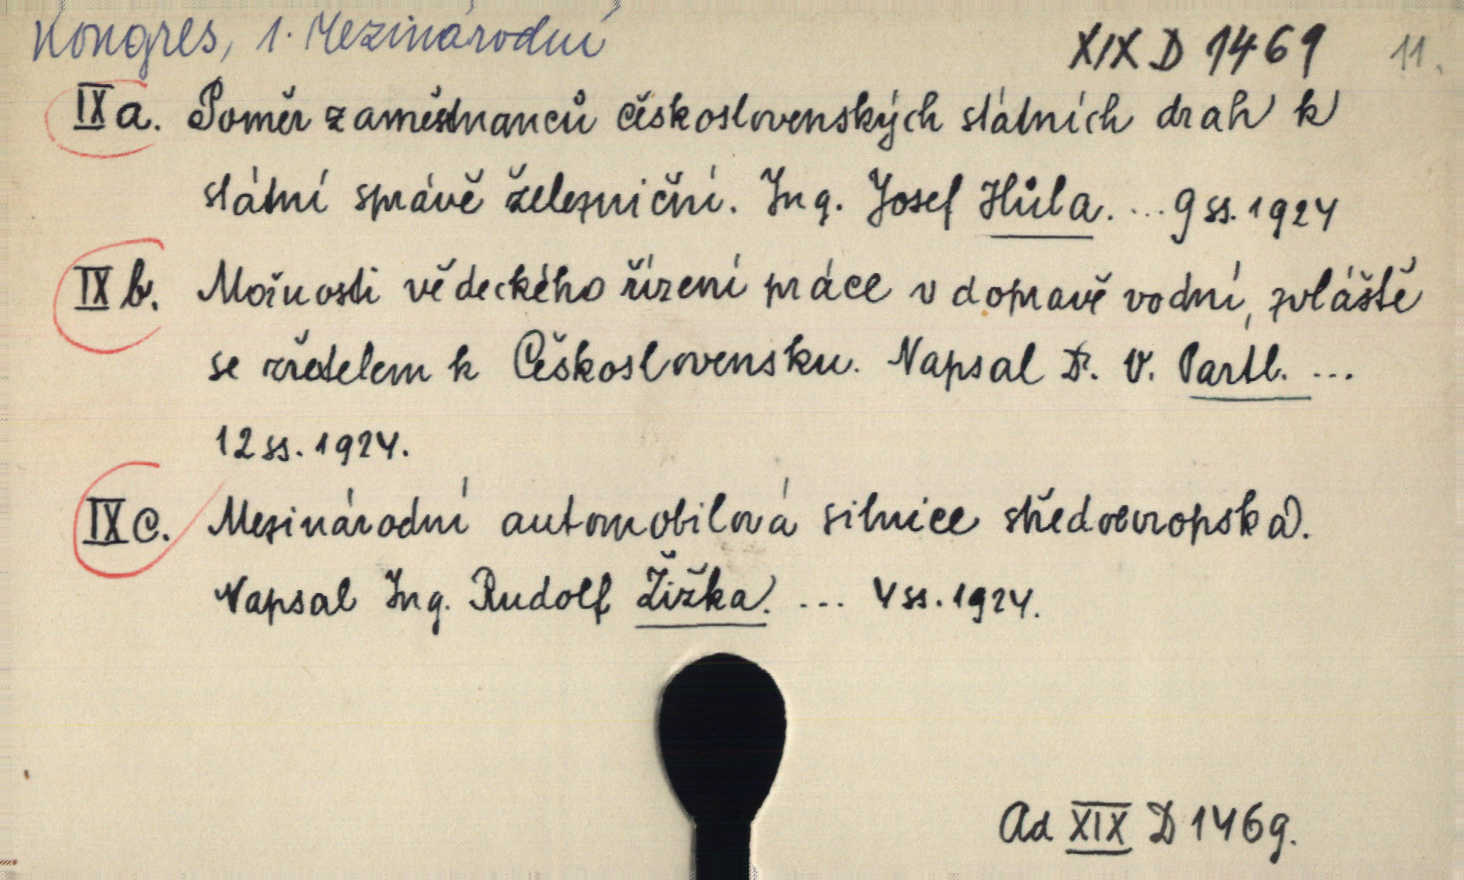 Kongres, 1. Mezinárodní
XIX D 1469 11.
IX a. Poměr zaměstnanců československých státních drah k
státní správě železniční. Ing. Josef Hůla. ... 9 ss. 1924
IX b. Možnosti vědeckého řízení práce v dopravě vodní, zvláště
se zřetelem k Československu. Napsal Dr. V. Partl. ...
12 ss. 1924.
IX c. Mezinárodní automobilová silnice středoevropská.
Napsal Ing. Rudolf Žižka. ... 4 ss. 1924.
Ad XIX D 1469.